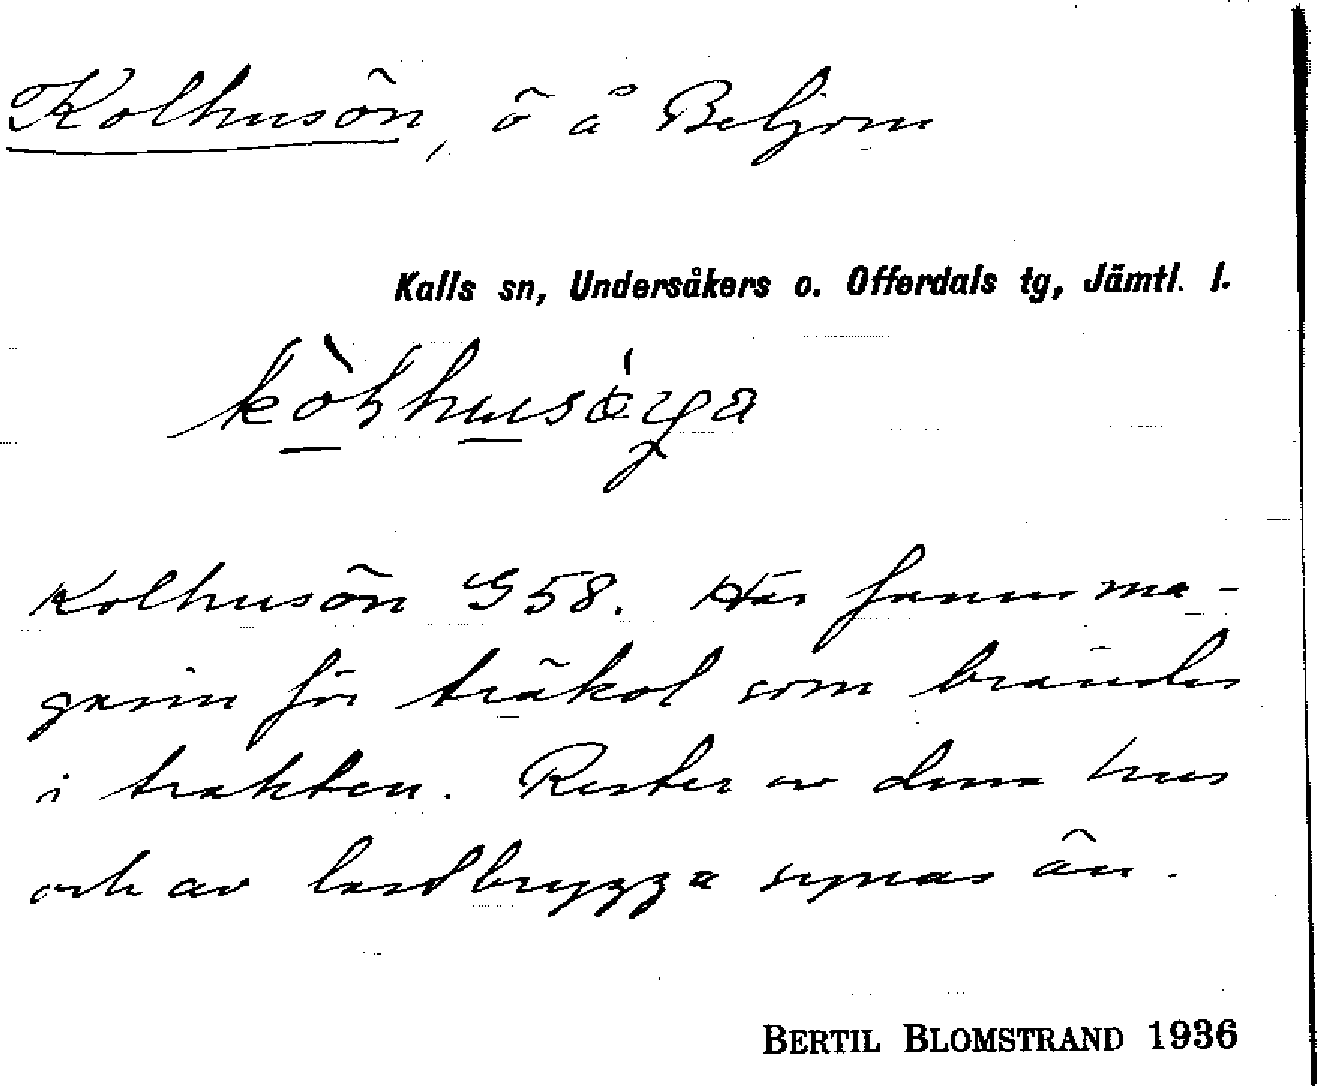 Kolhusön, ö å Beljom
Kalls sn, Undersåkers o. Offerdals tg, Jämtl. l.
Kolhusön G58. Här fanns ma-
gasin för träkol som brändes
i trakten. Rester av detta hus
och av lastbrygga synas än.
BERTIL BLOMSTRAND 1936